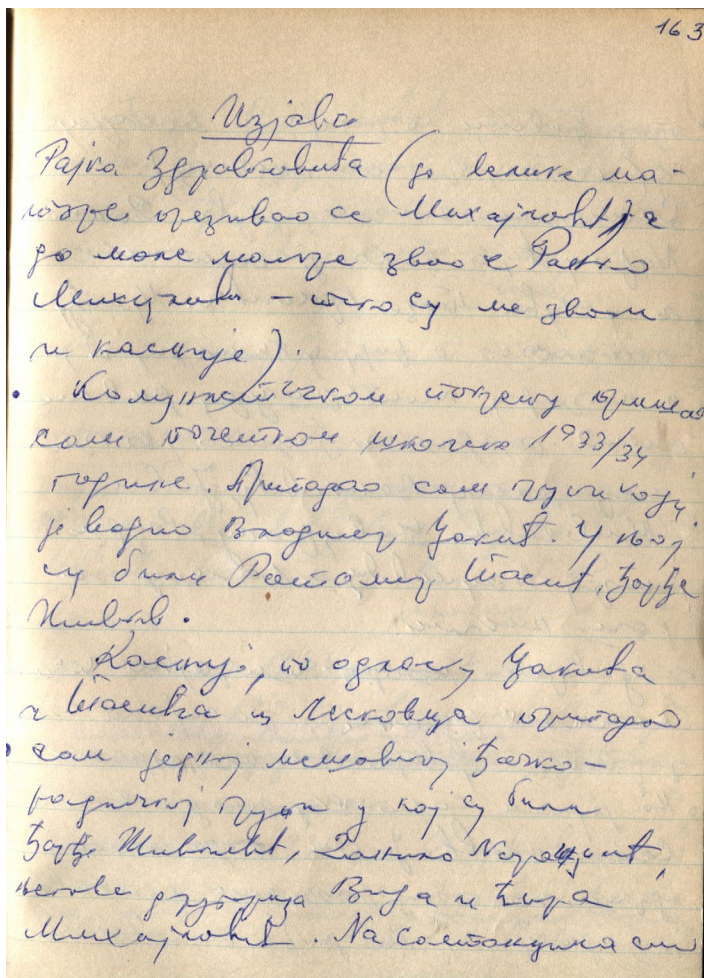 163
Изјава
Рајка Здравковића (до велике ма-
туре презивао се Михајловић, а
до мале матуре звао се Ратко
Михајловић – тако су ме звали
и касније).
Комунистичком покрету пришао
сам почетком школске 1933/34
године. Припадао сам групи коју
је водио Владимир Цакић. У њој
су били Растомир Тасић, Ђорђе
Касније, по одласку Цакића
и Тасића из Лесковца припадао
сам једној мешовитој ђачко-
радничкој групи у којој су били
Ђорђе
његова другарица Вида и Ђира
Михајловић. На састанцима смо